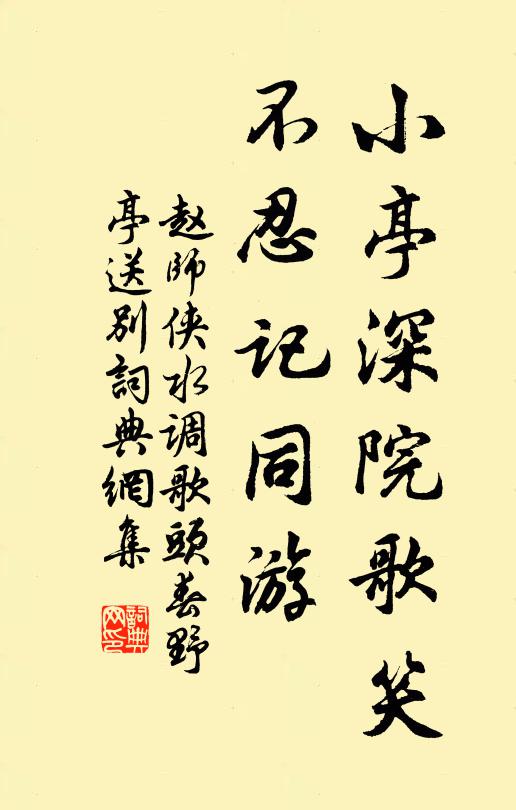 小亭深院歌笑
不忍记同游
赵師侠水调歌頭春野
亭送别詞典網集
詞典网印